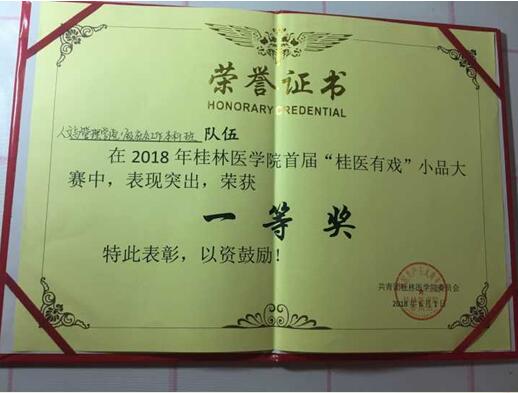 荣誉证书
HONORARY CREDENTIAL
人文与管理学院 队伍
在2018年桂林医学院首届“桂医有戏”小品大
赛中，表现突出，荣获
一等奖
特此表彰，以资鼓励！
共青团桂林医学院委员会
2018年6月1日